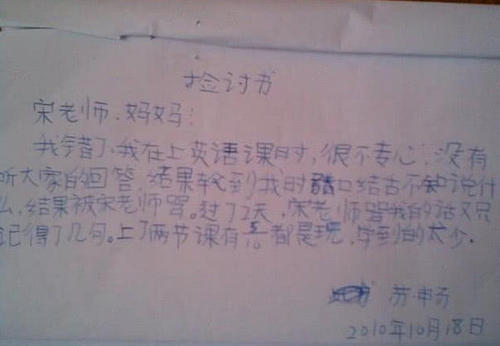 检讨书
宋老师、妈妈：
我错了，我在上英语课时，很不专心，没有
听大家的回答，结果轮到我时口结舌不知说什
么，结果被宋老师骂。过了2天，宋老师骂我的话又只
记得了几句。上了两节课有5/10都是玩，学到的太少。
苏
2010年10月18日